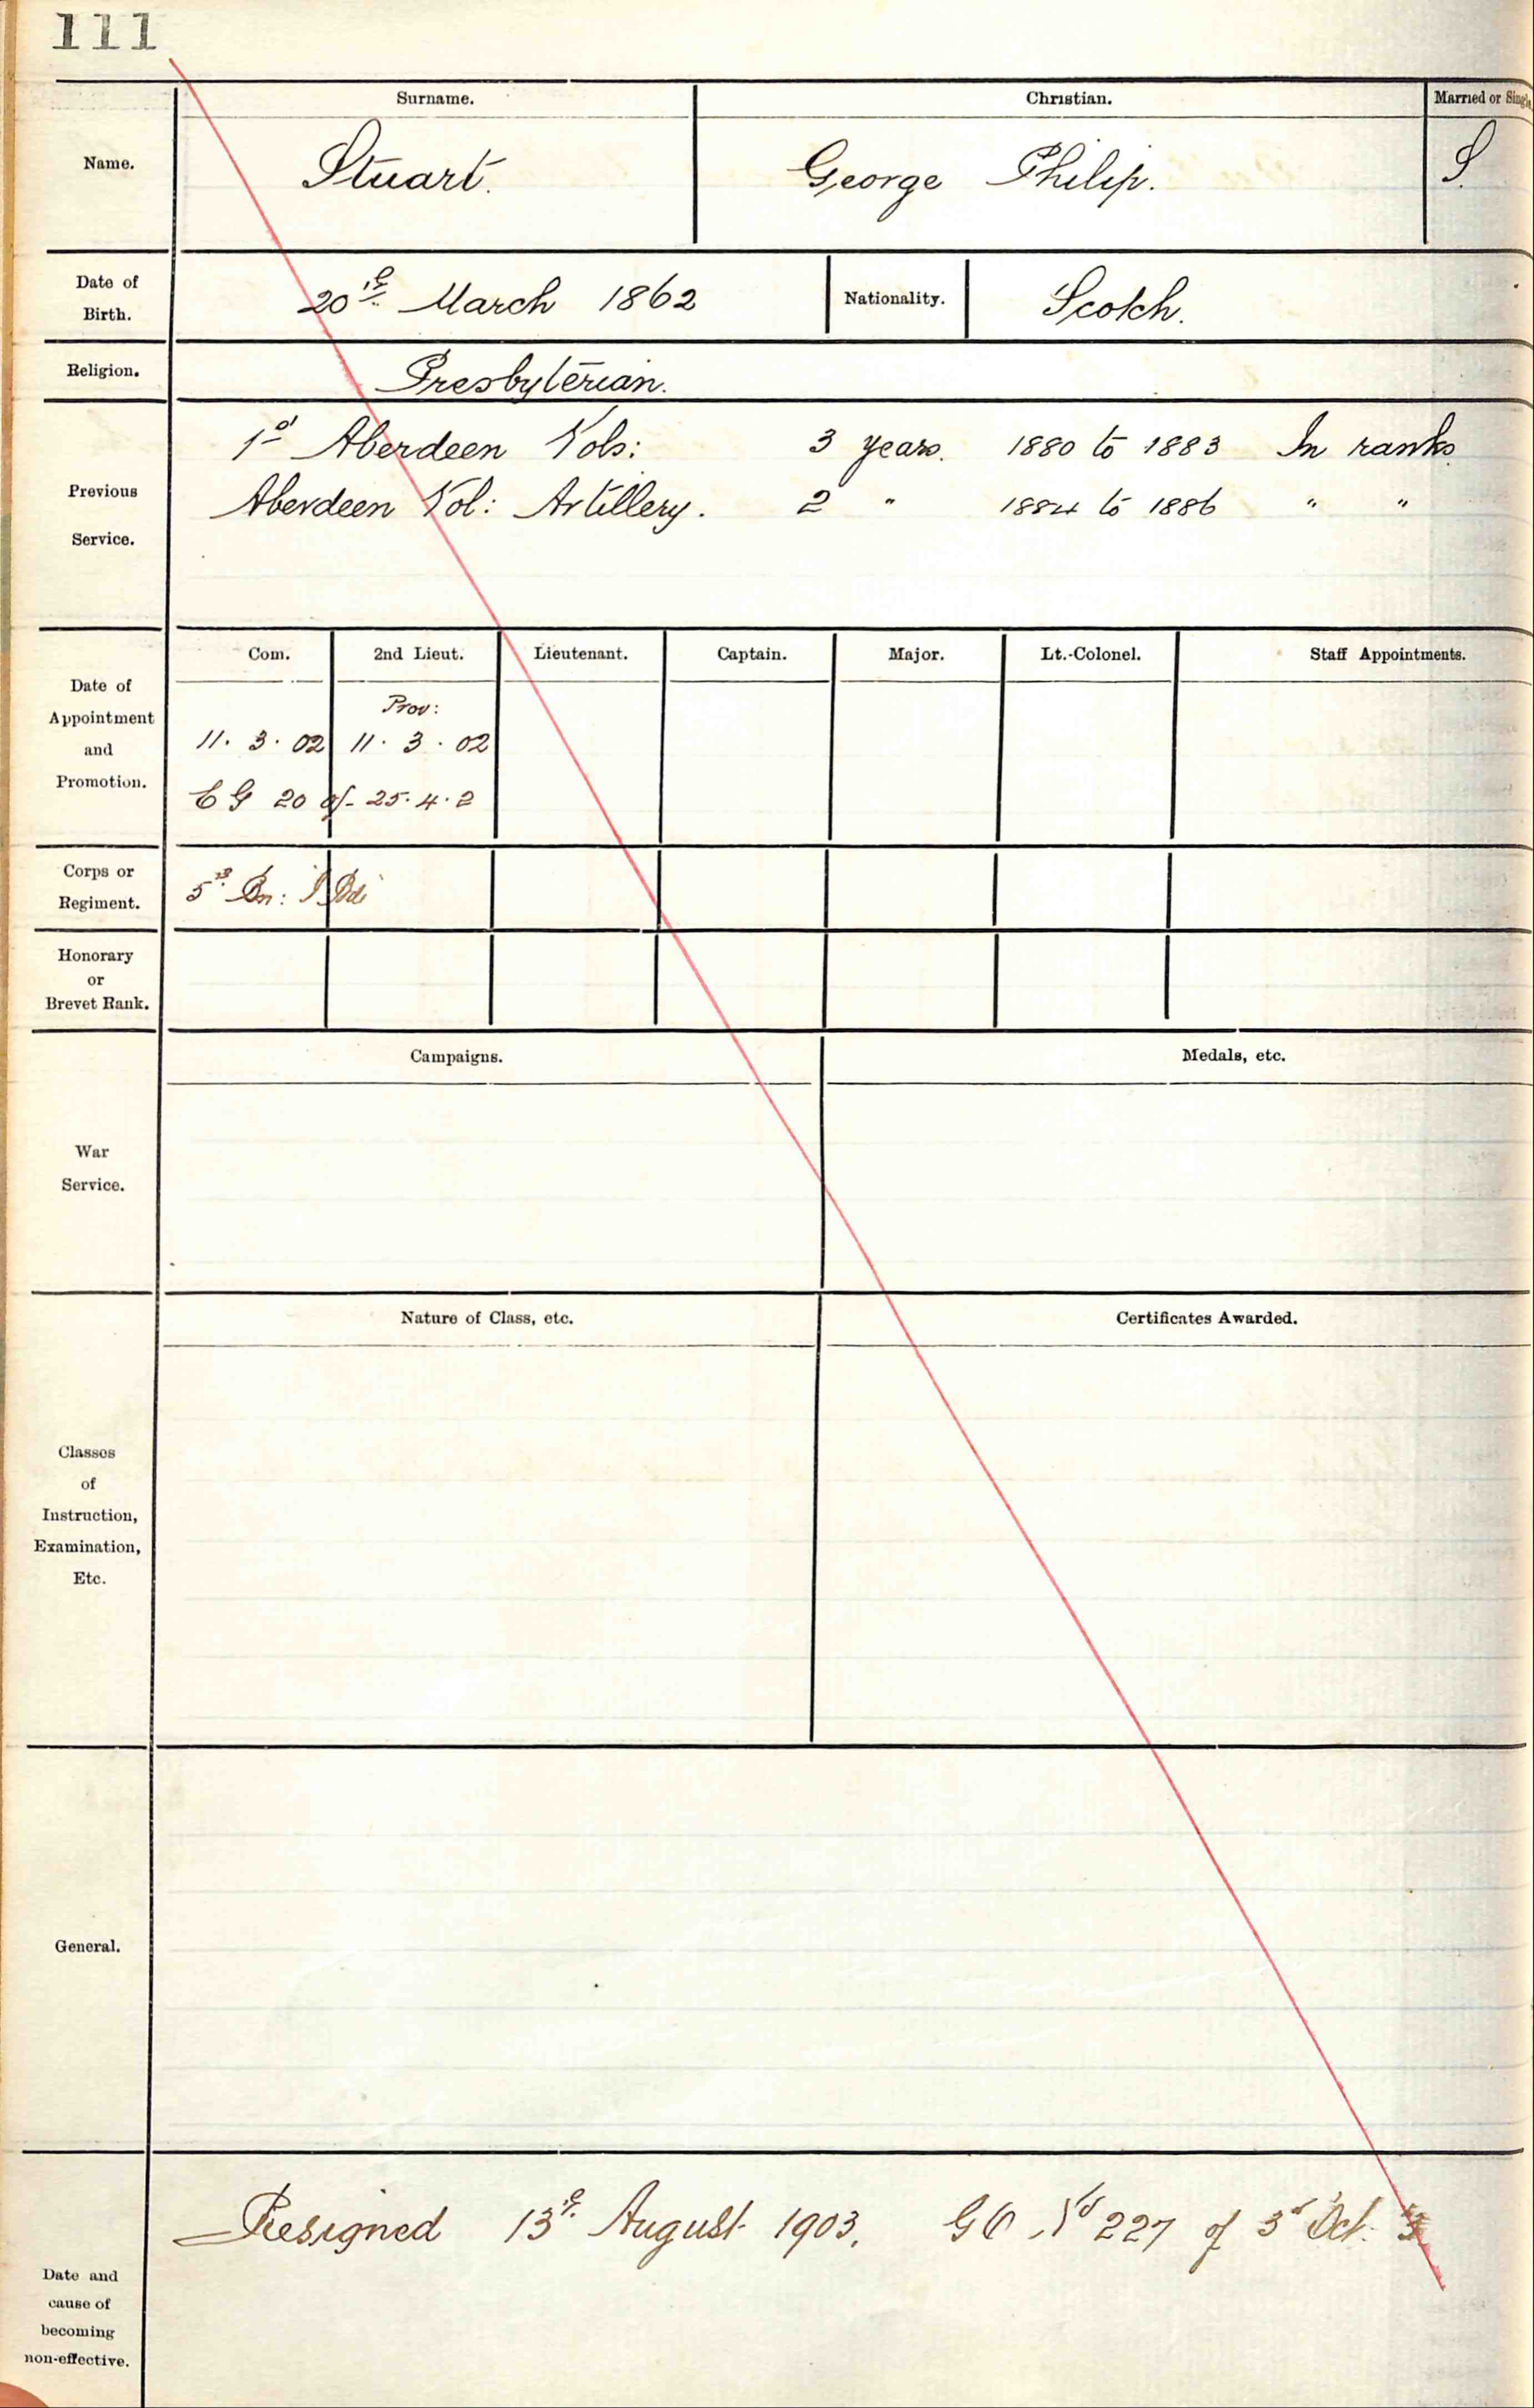 111
Surname. Christian. Married or Single
Name. Stuart. George Philip. S.
Date of Birth. 20th March 1862 Nationality. Scotch.
Religion. Presbyterian.
Previous Service.
1st Aberdeen Vols: 3 years. 1880 to 1883 In ranks
Aberdeen Vol: Artillery. 2 " 1884 to 1886 " "
Com. 2nd Lieut. Lieutenant. Captain. Major. Lt.-Colonel. Staff Appointments.
Date of Appointment and Promotion.
Prov:
11. 3. 02 11. 3. 02
20 of 25.4.2
Corps or Regiment. 5th Bn:
Honorary or Brevet Rank.
Campaigns. Medals, etc.
War Service.
Nature of Class, etc. Certificates Awarded.
Classes of Instruction, Examination, Etc.
General.
Resigned 13th August 1903. GO No 227 of 3d Oct: 3
Date and cause of becoming non-effective.